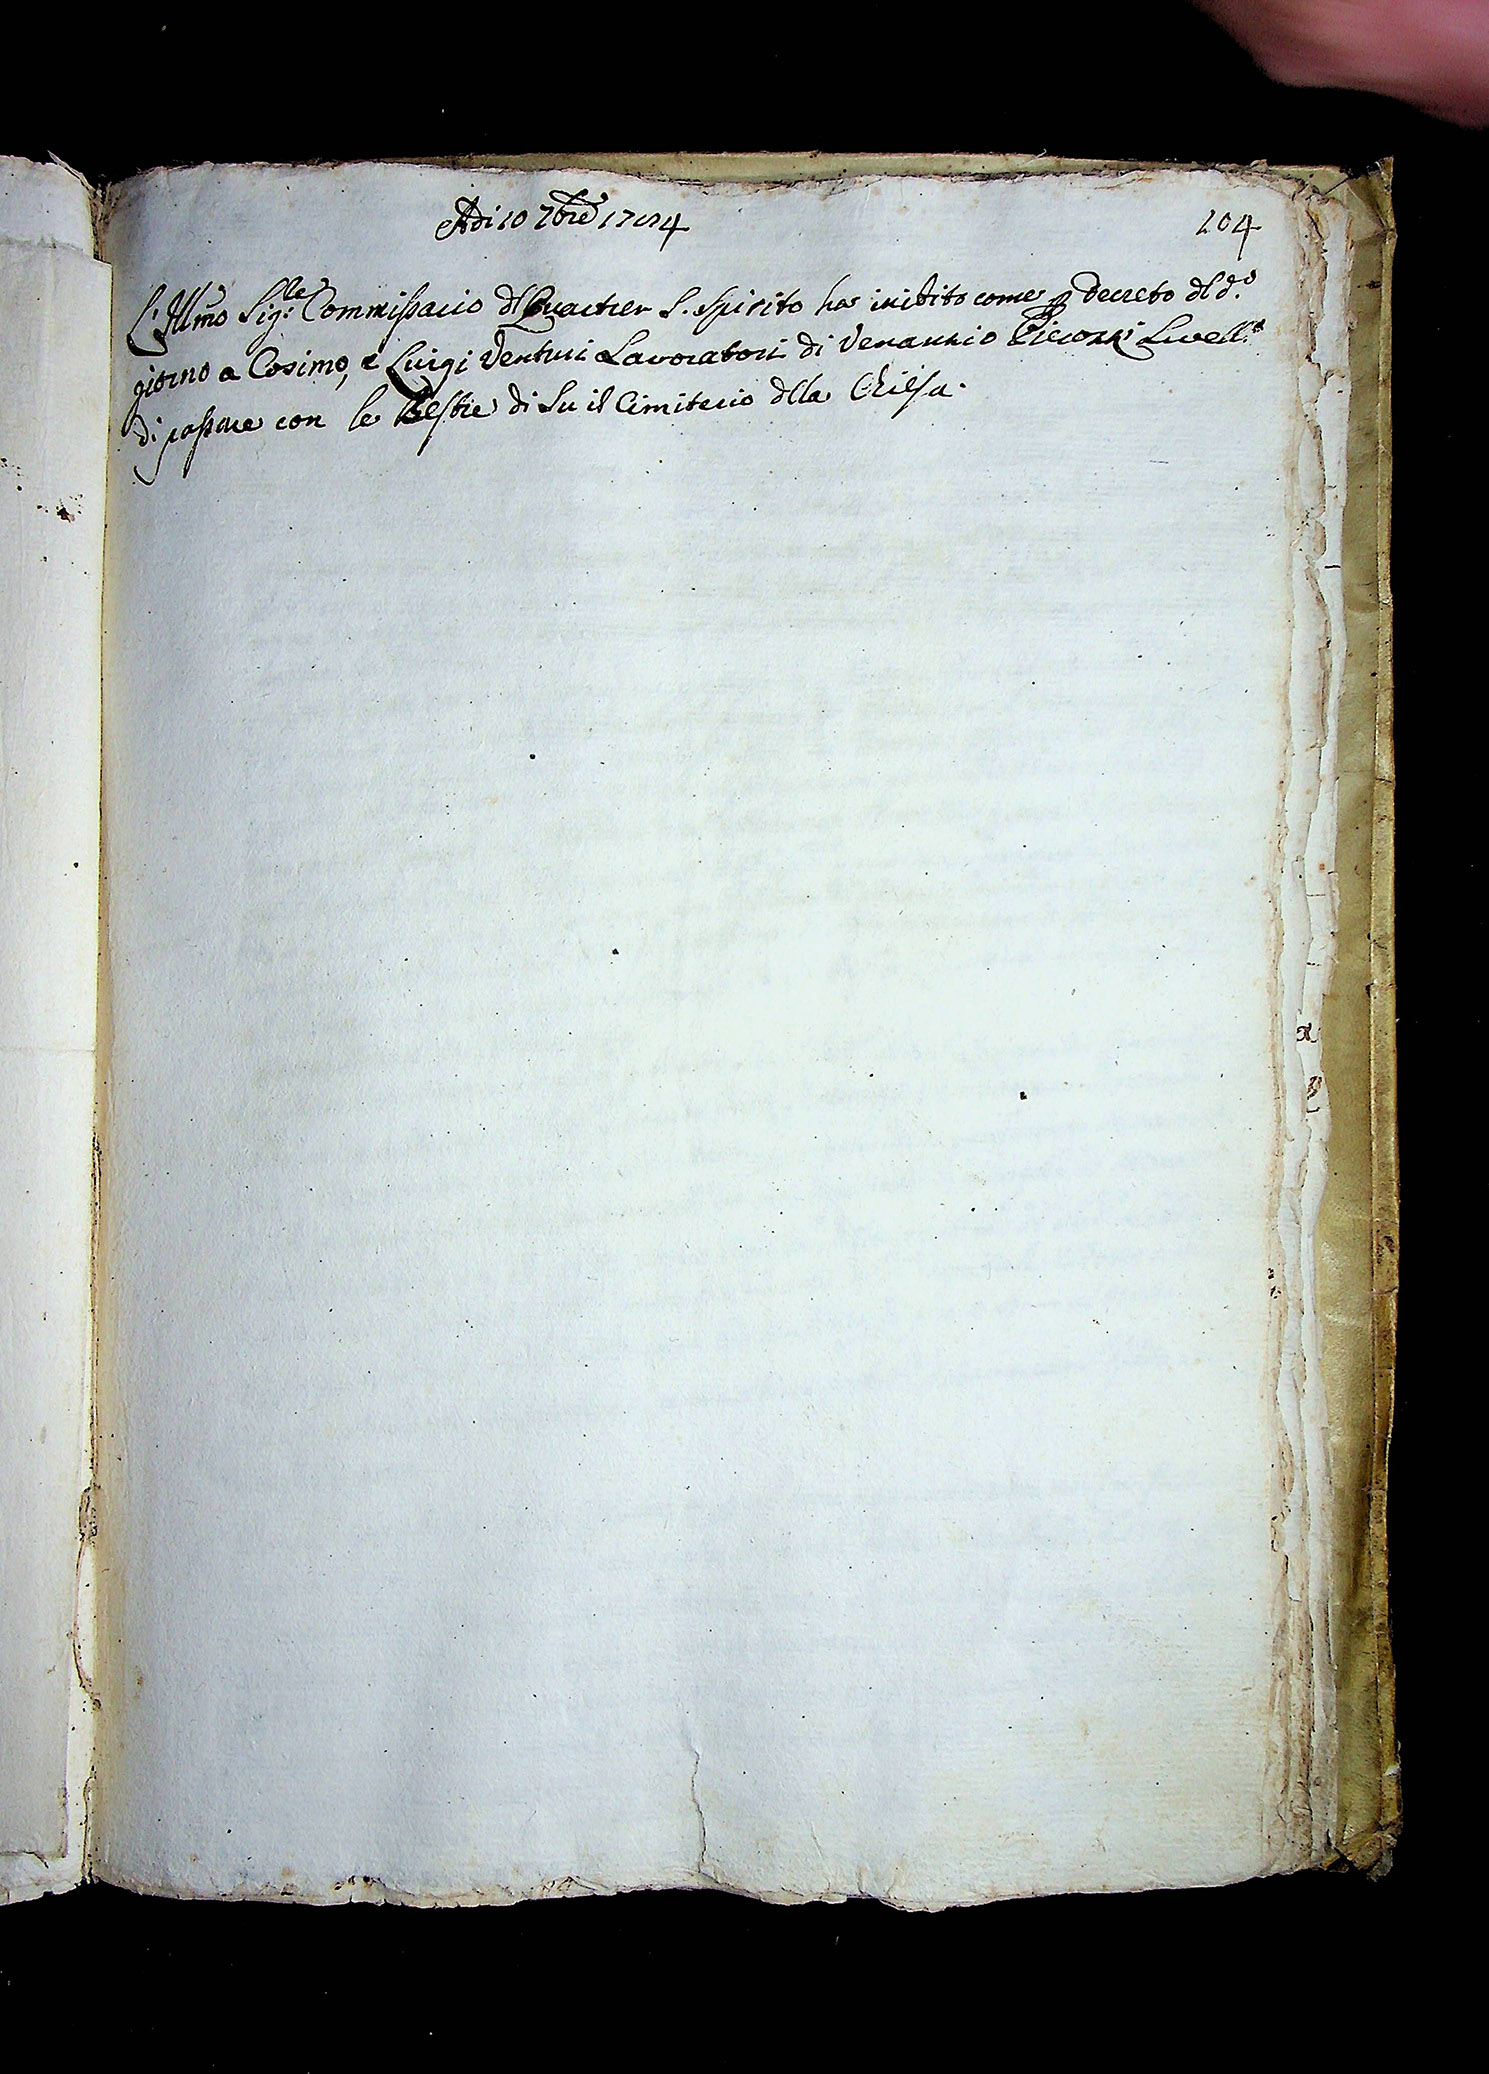 Adi 10 7bre 1784
204
L'Illmo Sigle Commissario dl Quartier S. Spirito ha inibito come p decreto dl do.
giorno a Cosimo, e Luigi Venturi Lavoratori di Venanzio Pierozzi Livello
di passare con le Bestie di Su il Cimiterio dlla Chiesa.